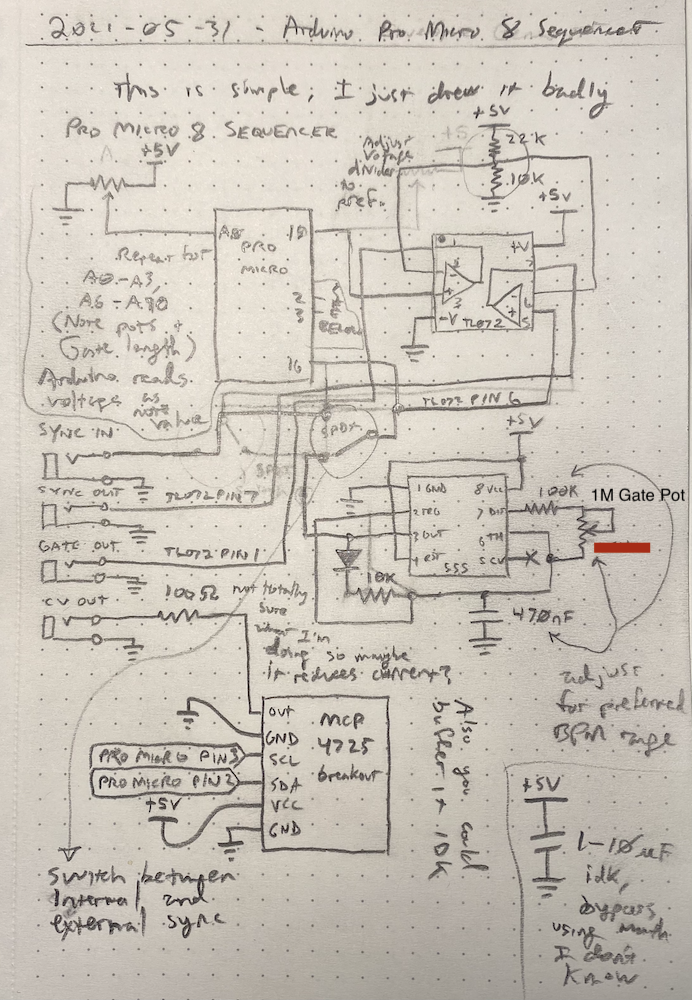 2021-05-31 - Arduino Pro Micro 8 Sequencer
This is simple, I just drew it badly
PRO MICRO 8 SEQUENCER
+5V
Adjust
voltage
divider
to
pref.
+5V
22K
10K
+5V
A8
PRO
MICRO
10
2
3
16
SEE
BELOW
Repeat for
A0-A3,
A6-A10
(Note pots +
Gate length)
Arduino reads
voltages as
note
value
1
2
3
+V
7
6
5
-V
TL072
TL072 PIN 6
SPDT
SYNC IN
SYNC OUT
TL072 PIN 7
GATE OUT
TL072 PIN 1
CV OUT
100Ω
not totally
sure
what I'm
doing so maybe
it reduces current?
+5V
1 GND
8 VCC
2 TRG
7 DIS
3 OUT
6 TH
4 RST
5 CV
555
100K
1M Gate Pot
10K
470nF
adjust
for preferred
BPM range
OUT
GND
SCL
SDA
VCC
GND
MCP
4725
breakout
PRO MICRO PIN 3
PRO MICRO PIN 2
+5V
Also you could
buffer it + 10K
Switch between
Internal and
external sync
+5V
1-10uF
idk,
bypass
using math
I don't
know